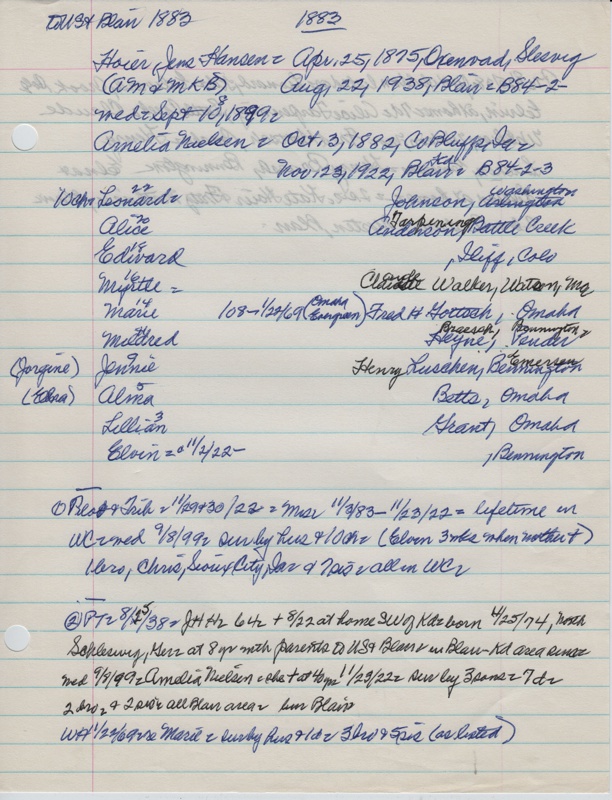 to US & Blair 1883 1883
Hoier, Jens Hansen = Apr. 25, 1875, Oxenvad, Slesvig
(AM & MKB) Aug, 22, 1938, Blair = B84-2-
wed = Sept 10, 1899 =
8
Amelia Nielsen = Oct. 3, 1882, Co Bluffs, Ia =
Nov. 23, 1922, Blair = B84-2-3
10 ch = Leonard = Johnson, Arlington
22 Washington
Alice Anderson, Battle Creek
20
Edward , Iliff, Colo
18
Myrtle = Walker, Watson, Mo
16
Marie 108 - 1/22/69 (Omaha Evergreen) Fred H Gottsch, Omaha
14
Mildred Heyne, Pender
Braesch, Bennington
(Jorgine) Jennie Henry Luschen, Bennington
Emerson
(Edna) Alma Betts, Omaha
5
Lillian Grant, Omaha
3
Elvin = 11/2/22 - , Bennington
① & Trib = 11/29 & 30/22 = 11/3/83 - 11/23/22 = lifetime in
WC = wed 9/8/99 = sur by hus & 10 ch = (Elvin 3 wks when mother +)
bro, Chris, Sioux City, Ia = & 7 sis = all in WC =
② PT = 8/25/38 = JHH = 64 = + 8/22 at home SW of Kd = born 4/25/74, North
Schleswig, Ger = at 8 yr with parents to US & Blair = in Blair-Kd area since
wed 9/8/99 = Amelia Nielsen = she + at 40 yr 11/23/22 = sur by 3 sons = 7 d =
2 bro = & 2 sis = all Blair area = bur Blair
WH 1/22/69 = Marie = sur by hus & 1 d = 3 bro & 5 sis (as listed)